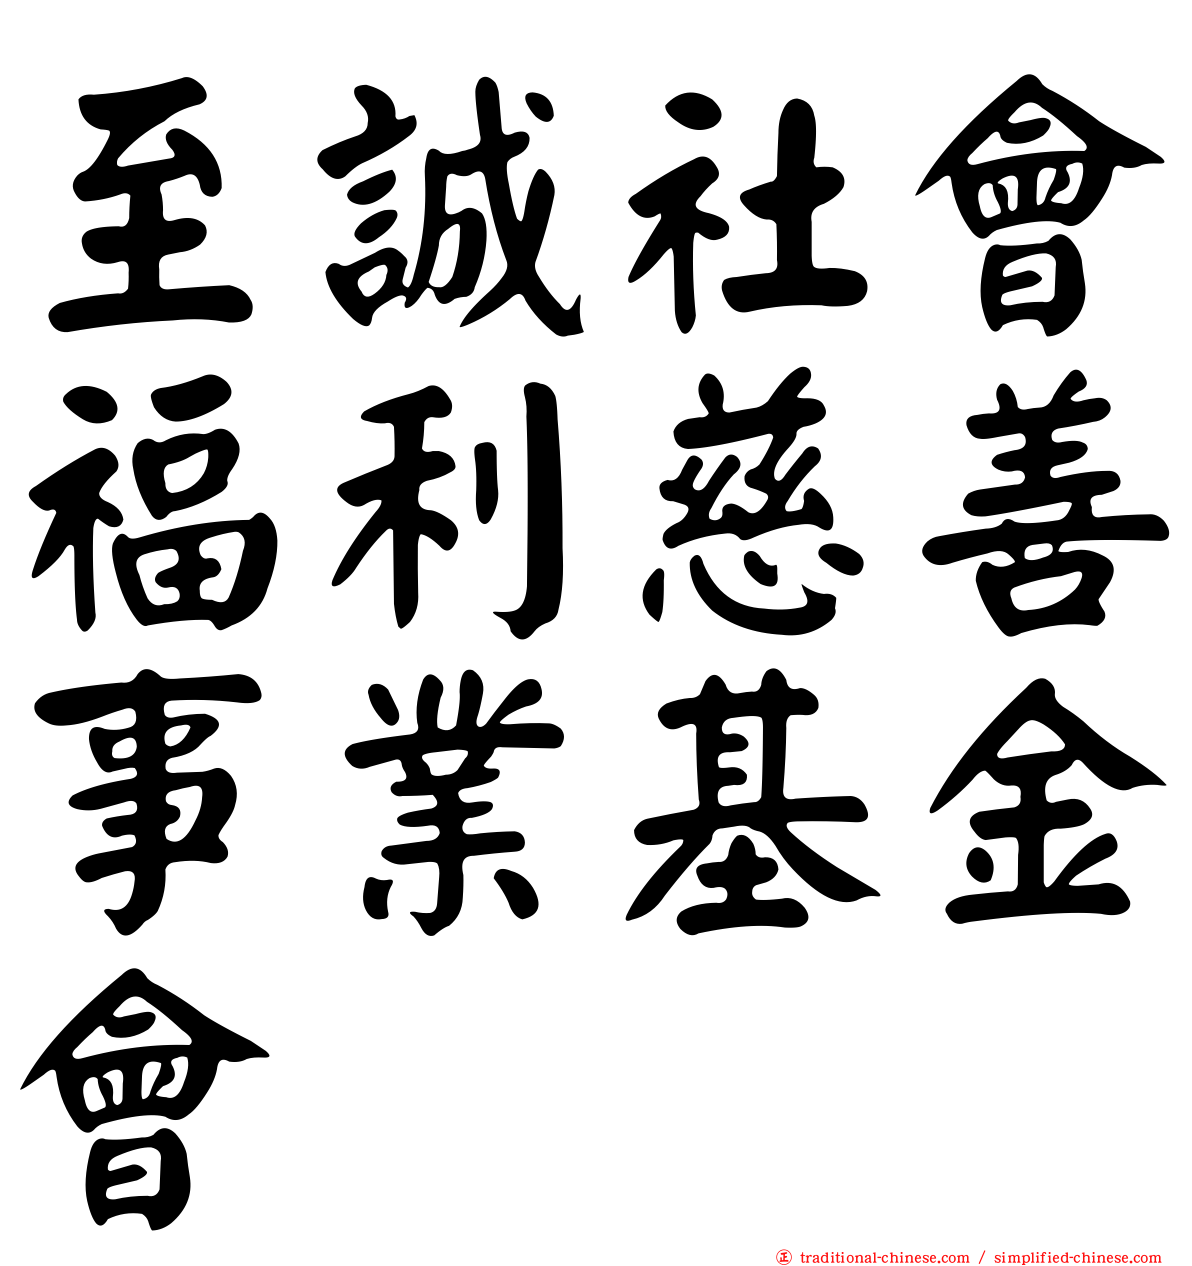 至誠社會
福利慈善
事業基金
會
正 traditional-chinese.com / simplified-chinese.com